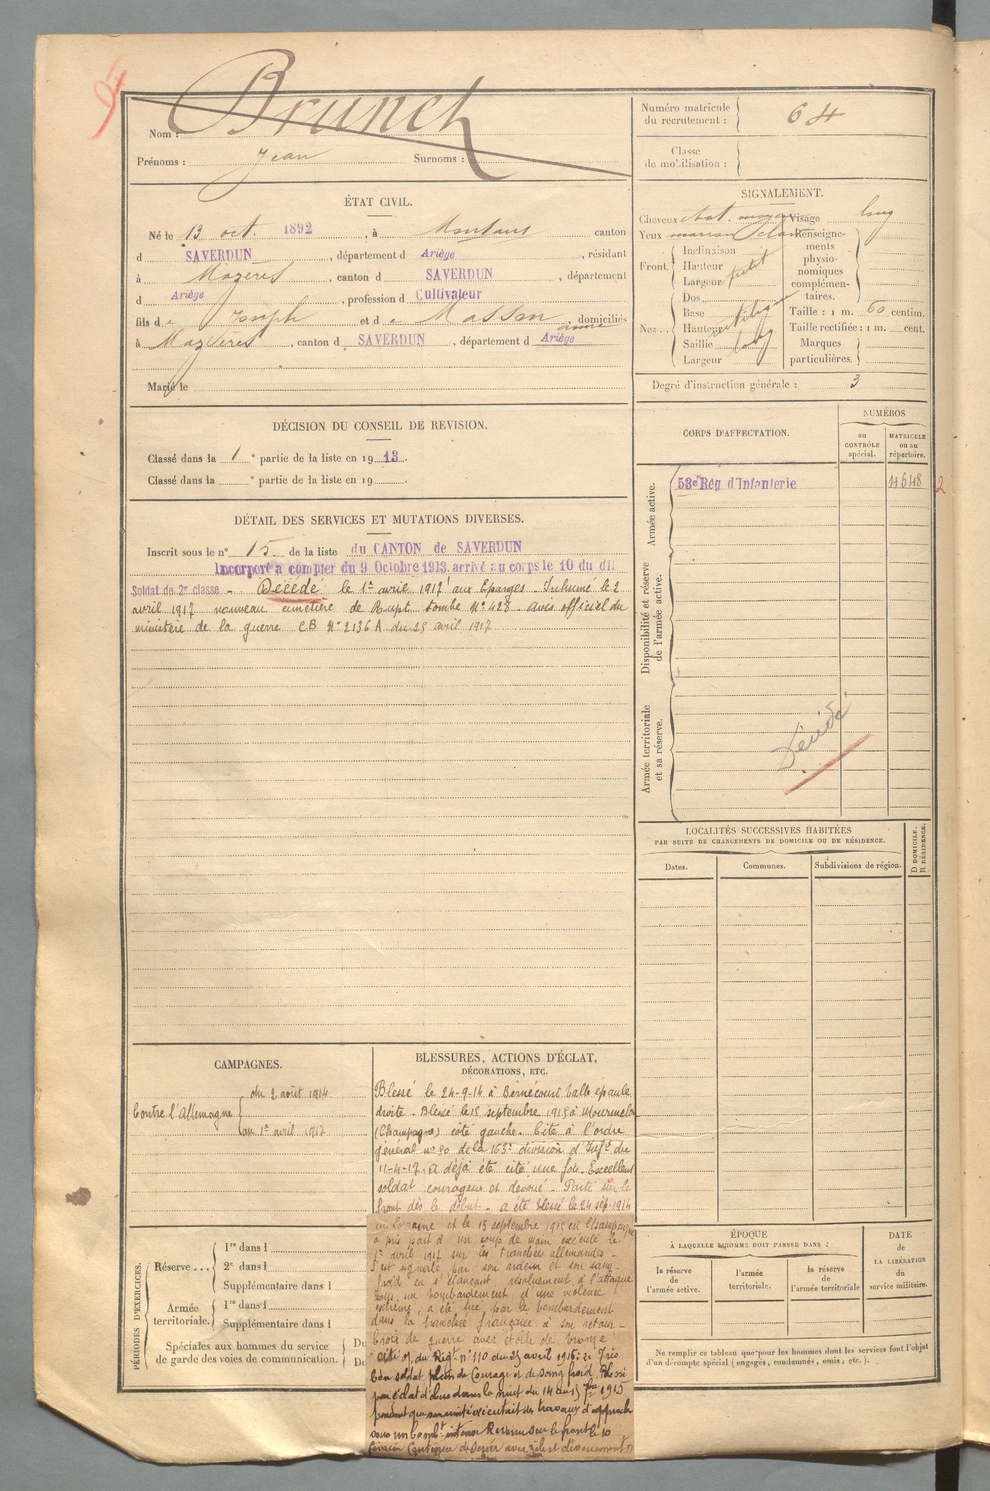 Brunet
Nom :
Prénoms : Jean Surnoms :
ÉTAT CIVIL.
Né le 13 oct. 1892, à Montaut canton
d SAVERDUN, département d Ariège, résidant
à Mazères, canton d SAVERDUN, département
d Ariège, profession d Cultivateur
fils de Joseph et de Masson anne, domiciliés
à Mazères, canton d SAVERDUN, département d Ariège
Marié le
DÉCISION DU CONSEIL DE REVISION.
Classé dans la 1e partie de la liste en 1913.
Classé dans la e partie de la liste en 19
DÉTAIL DES SERVICES ET MUTATIONS DIVERSES.
Inscrit sous le n° 15 de la liste du CANTON de SAVERDUN
Incorporé à compter du 9 Octobre 1913. arrivé au corps le 10 du dit
Soldat de 2e classe - Décédé le 1er avril 1917 aux Eparges. Inhumé le 2
avril 1917 nouveau cimetière de Rupt tombe N° 428. avis officiel du
ministère de la guerre CB N° 2136 A du 25 avril 1917
CAMPAGNES.
Contre l'Allemagne
du 2 août 1914
au 1er avril 1917
BLESSURES, ACTIONS D'ÉCLAT,
DÉCORATIONS, ETC.
Blessé le 24-9-14 à Bernécourt balle épaule
droite - Blessé le 15 septembre 1915 à Mourmelon
(Champagne) côté gauche. Cité à l'ordre
général n° 90 de la 165e division d'Infie du
11-4-17. a déjà été cité une fois. Excellent
soldat courageux et dévoué - Parti sur le
front dès le début - a été blessé le 24 sep. 1914
en Lorraine et le 15 septembre 1915 en Champagne
a pris part à un coup de main exécuté le
1er avril 1917 sur les tranchées allemandes -
S'est signalé par son ardeur et son sang-
froid en s'élançant résolument à l'attaque
sous un bombardement d'une violence
extrême, a été tué par le bombardement
dans la tranchée française à son retour -
Croix de guerre avec étoile de bronze
Cité O. du Régt n° 110 du 25 avril 1916: Très
bon soldat plein de courage et de sang froid. Blessé
par éclat d'obus dans la nuit du 14 au 15 1915
pendant que son unité exécutait des travaux d'approche
sous un bombt intense Revenu sur le front le 10
février Continue de servir avec zèle et dévouement
PÉRIODES D'EXERCICES.
Réserve...
1re dans l
2e dans l
Supplémentaire dans l
Armée
territoriale.
1re dans l
Supplémentaire dans l
Spéciales aux hommes du service
de garde des voies de communication.
Du
Du
Numéro matricule
du recrutement : 64
Classe
de mobilisation :
SIGNALEMENT.
Cheveux chat. moyen Visage long
Yeux marron clair
Front.
Inclinaison
Hauteur
Largeur petit
Nez..
Dos
Base
Hauteur
Saillie long
Largeur
Renseigne-
ments
physio-
nomiques
complémen-
taires.
Taille : 1 m. 60 centim.
Taille rectifiée : 1 m. cent.
Marques
particulières.
Degré d'instruction générale : 3
CORPS D'AFFECTATION.
NUMÉROS
au
CONTRÔLE
spécial.
MATRICULE
ou au
répertoire.
53e Rég d'Infanterie 4648 2
Armée active.
Disponibilité et réserve
de l'armée active.
Armée territoriale
et sa réserve.
Décédé
LOCALITÉS SUCCESSIVES HABITÉES
PAR SUITE DE CHANGEMENTS DE DOMICILE OU DE RÉSIDENCE.
Dates.
Communes.
Subdivisions de région.
D DOMICILE.
R RÉSIDENCE.
ÉPOQUE
À LAQUELLE L'HOMME DOIT PASSER DANS :
la réserve
de
l'armée active.
l'armée
territoriale.
la réserve
de
l'armée territoriale
DATE
de
LA LIBÉRATION
du
service militaire.
Ne remplir ce tableau que pour les hommes dont les services font l'objet
d'un décompte spécial (engagés, condamnés, omis, etc.).